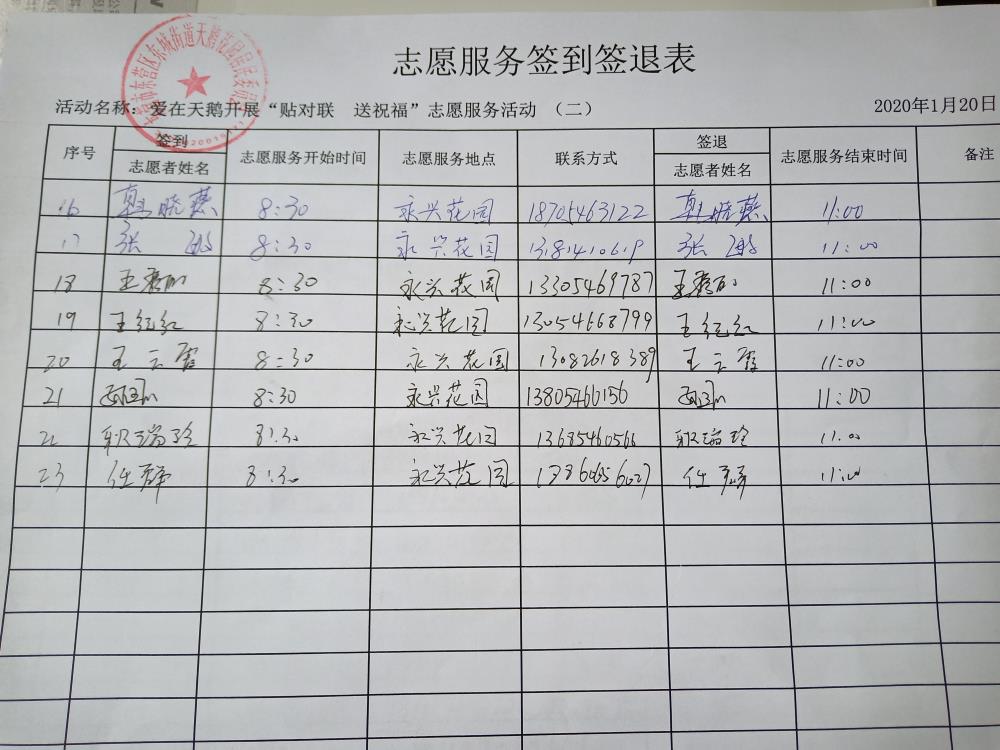 志愿服务签到签退表
活动名称：爱在天鹅开展“贴对联 送祝福”志愿服务活动 （二） 2020年1月20日
序号 签到 志愿者姓名 志愿服务开始时间 志愿服务地点 联系方式 签退 志愿者姓名 志愿服务结束时间 备注
16 韩晓燕 8:30 永兴花园 18705463122 韩晓燕 11:00
17 张 8:30 永兴花园 张 11:00
18 王 8:30 永兴花园 13305469787 王 11:00
19 王纪红 8:30 永兴花园 13054668799 王纪红 11:00
20 王云霞 8:30 永兴花园 13082618389 王云霞 11:00
21 8:30 永兴花园 13805466156 11:00
22 瑞玲 8:30 永兴花园 13685460566 瑞玲 11:00
23 任 8:30 永兴花园 任 11:00